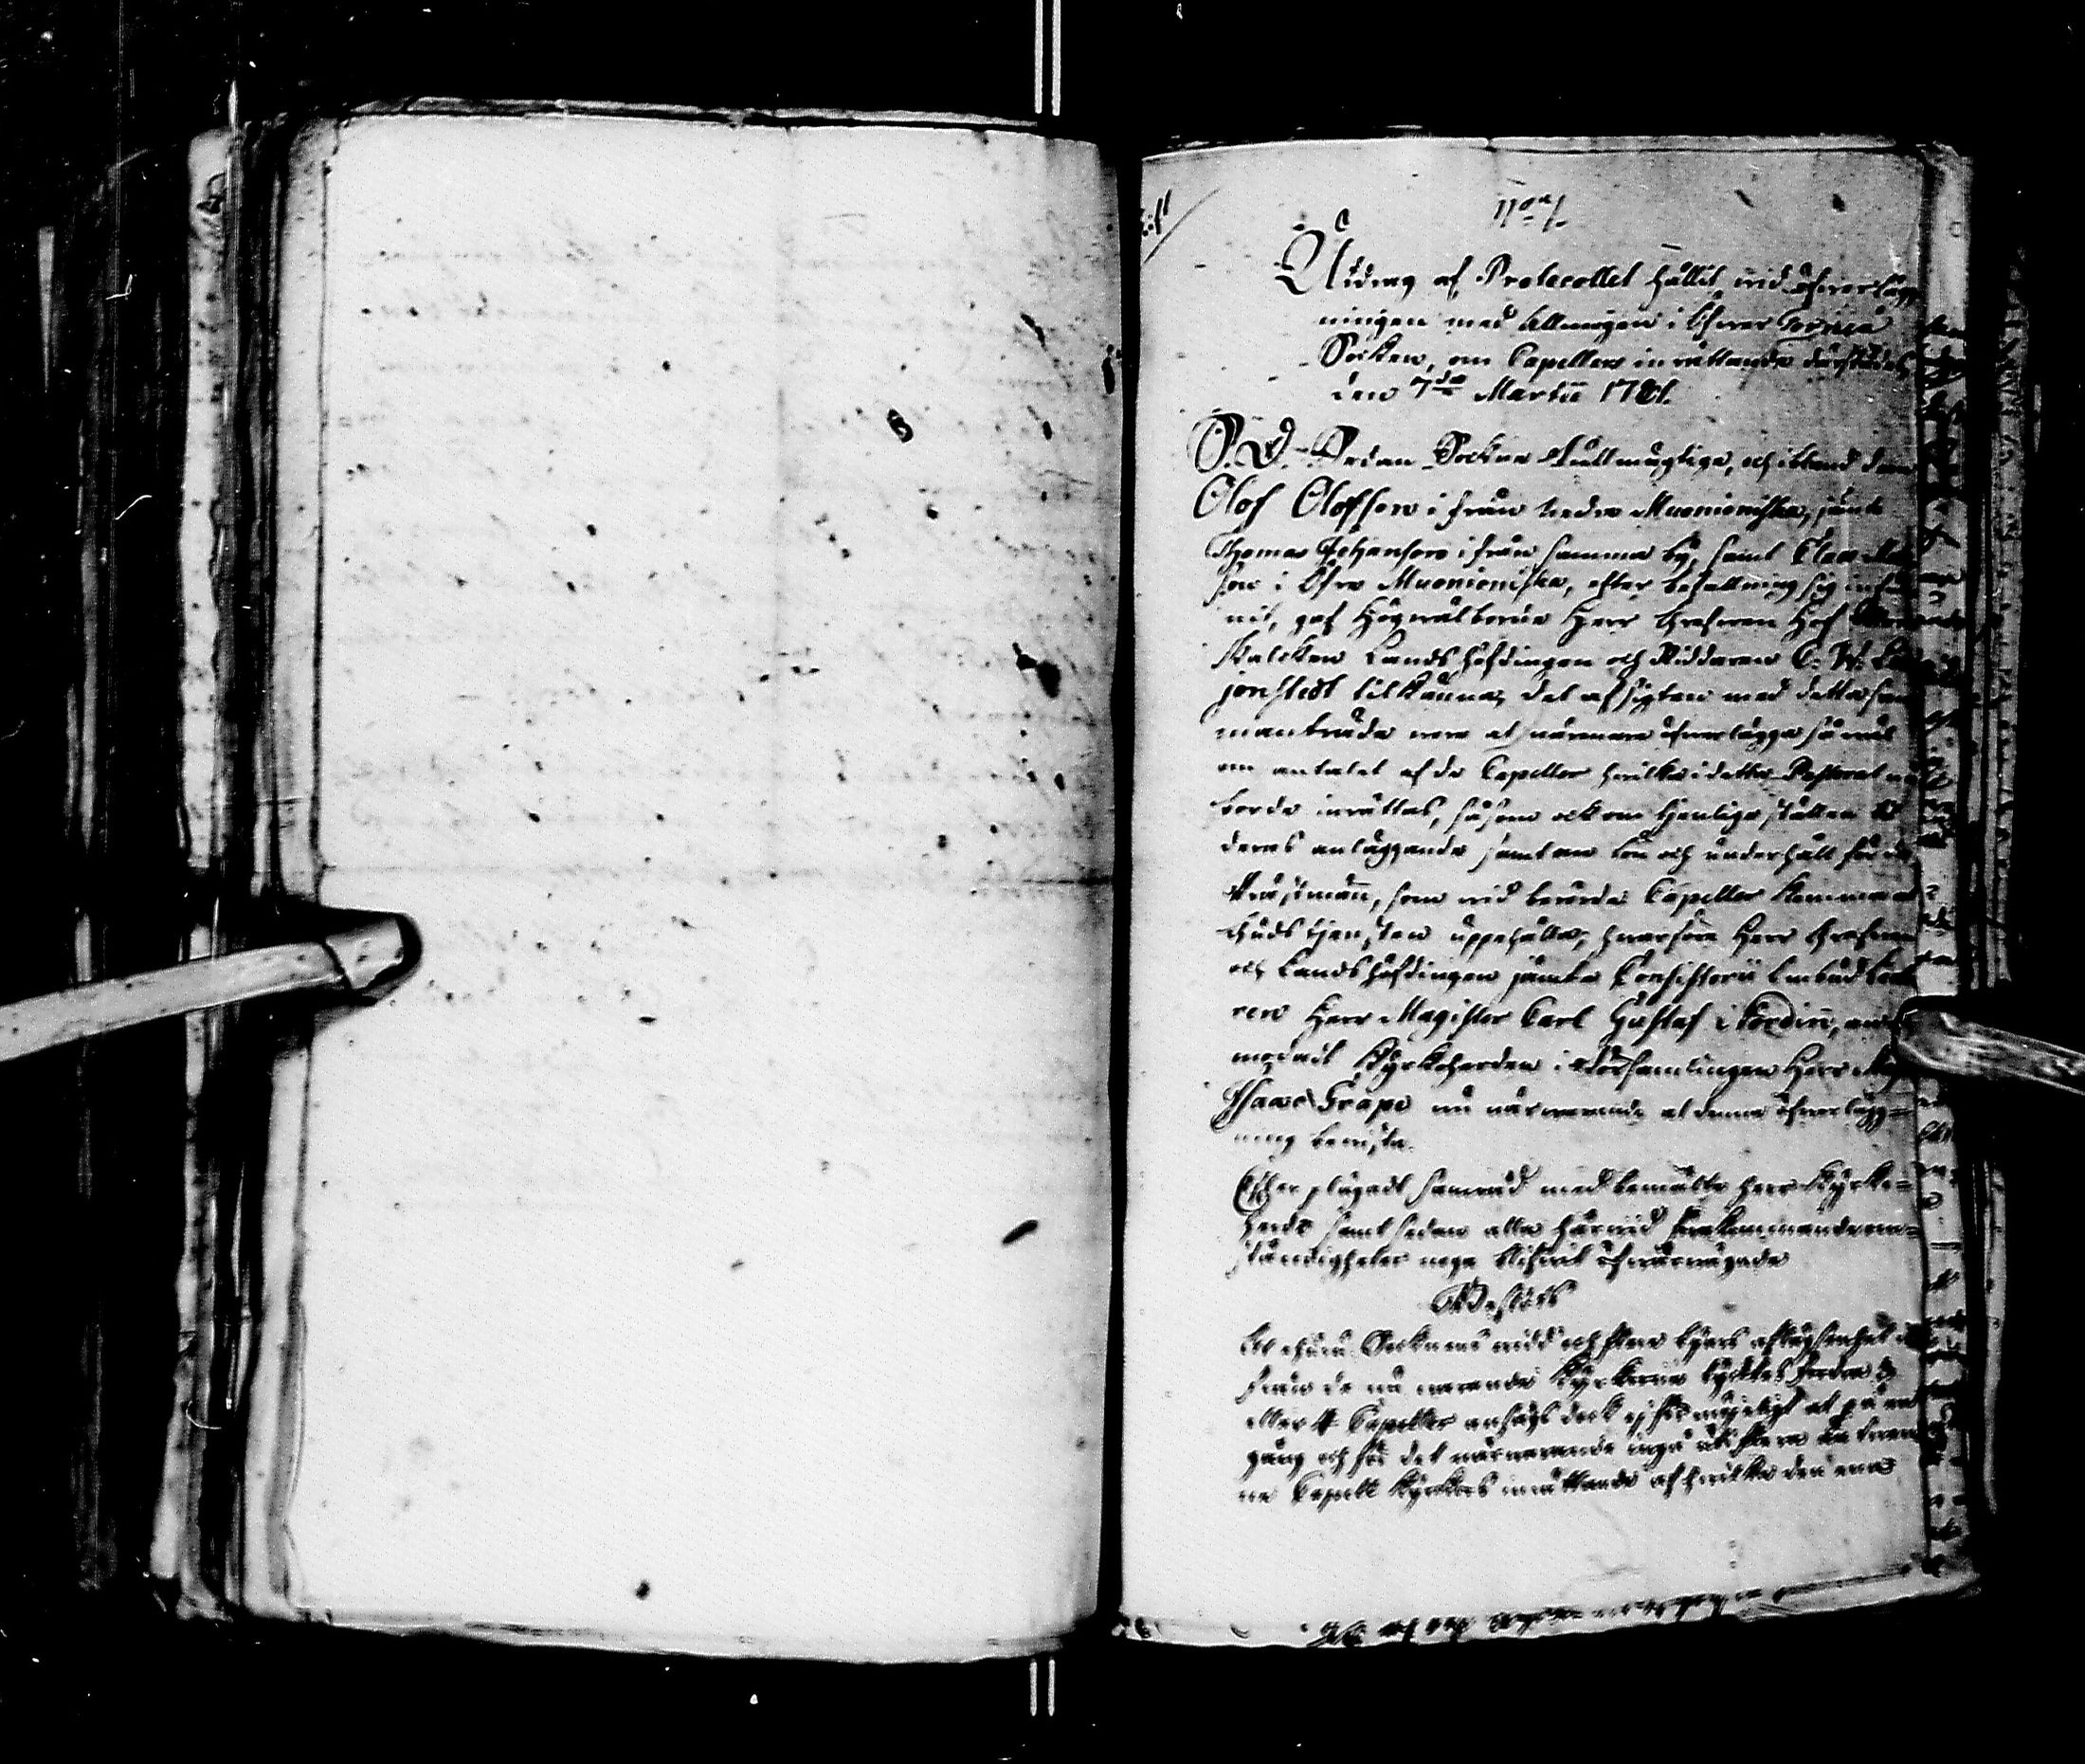 Utdrag af Protocollet hållit vid öfverlägg
ningen med Allmogen i Öfver Torneå
Socken, om Capellers inrättande därstädes
den 7de Martii 1781.
S. D. Sedan Sockne Fullmägtige, och ibland dem
Olof Olofsson ifrån Nedre Muonioniska, jämte
Thomas Johansson ifrån samma by, samt Clas
son i Öfre Muonioniska, efter befallning sig infun
nit, gaf Högvälborne Herr Grefven Hof
skalcken Landshöfdingen och Riddaren C. W.
jonstedt tilkänna, det afsigten med detta sam
manträde vore at närmare öfverlägga så väl
om antalet af de Capeller hvilka i detta Pastorat
borde inrättas, såsom ock om tjenliga ställen til
deras anläggande samt om lön och underhåll för de
Prästmän, som vid berörde Capeller komma at
Gudstjensten uppehålla, hvarföre Herr Grefven
och Landshöfdingen jämte Consistorii
ren Herr Magister Carl Gustaf Nordin, an
modadt Kyrkoherden i Församlingen Herr Mag
Isaac Grape nu närvarande at denna öfverlägg=
ning bevista.
Efter plägadt samråd med bemälte Herr Kyrko=
herde samt sedan alla härvid förekommande om=
ständigheter noga blifvit öfvervägade
Beslöts
At ehuru Socknens vidd och flere byars aflägsenhet i
från de nu varande Kyrkorne tycktes fordra 3
eller 4 Capeller ansågs dock ej för möjeligt at på en
gång och för det närvarande ingå uti flere än tven
ne Capell Kyrkors inrättande af hvilka den ena